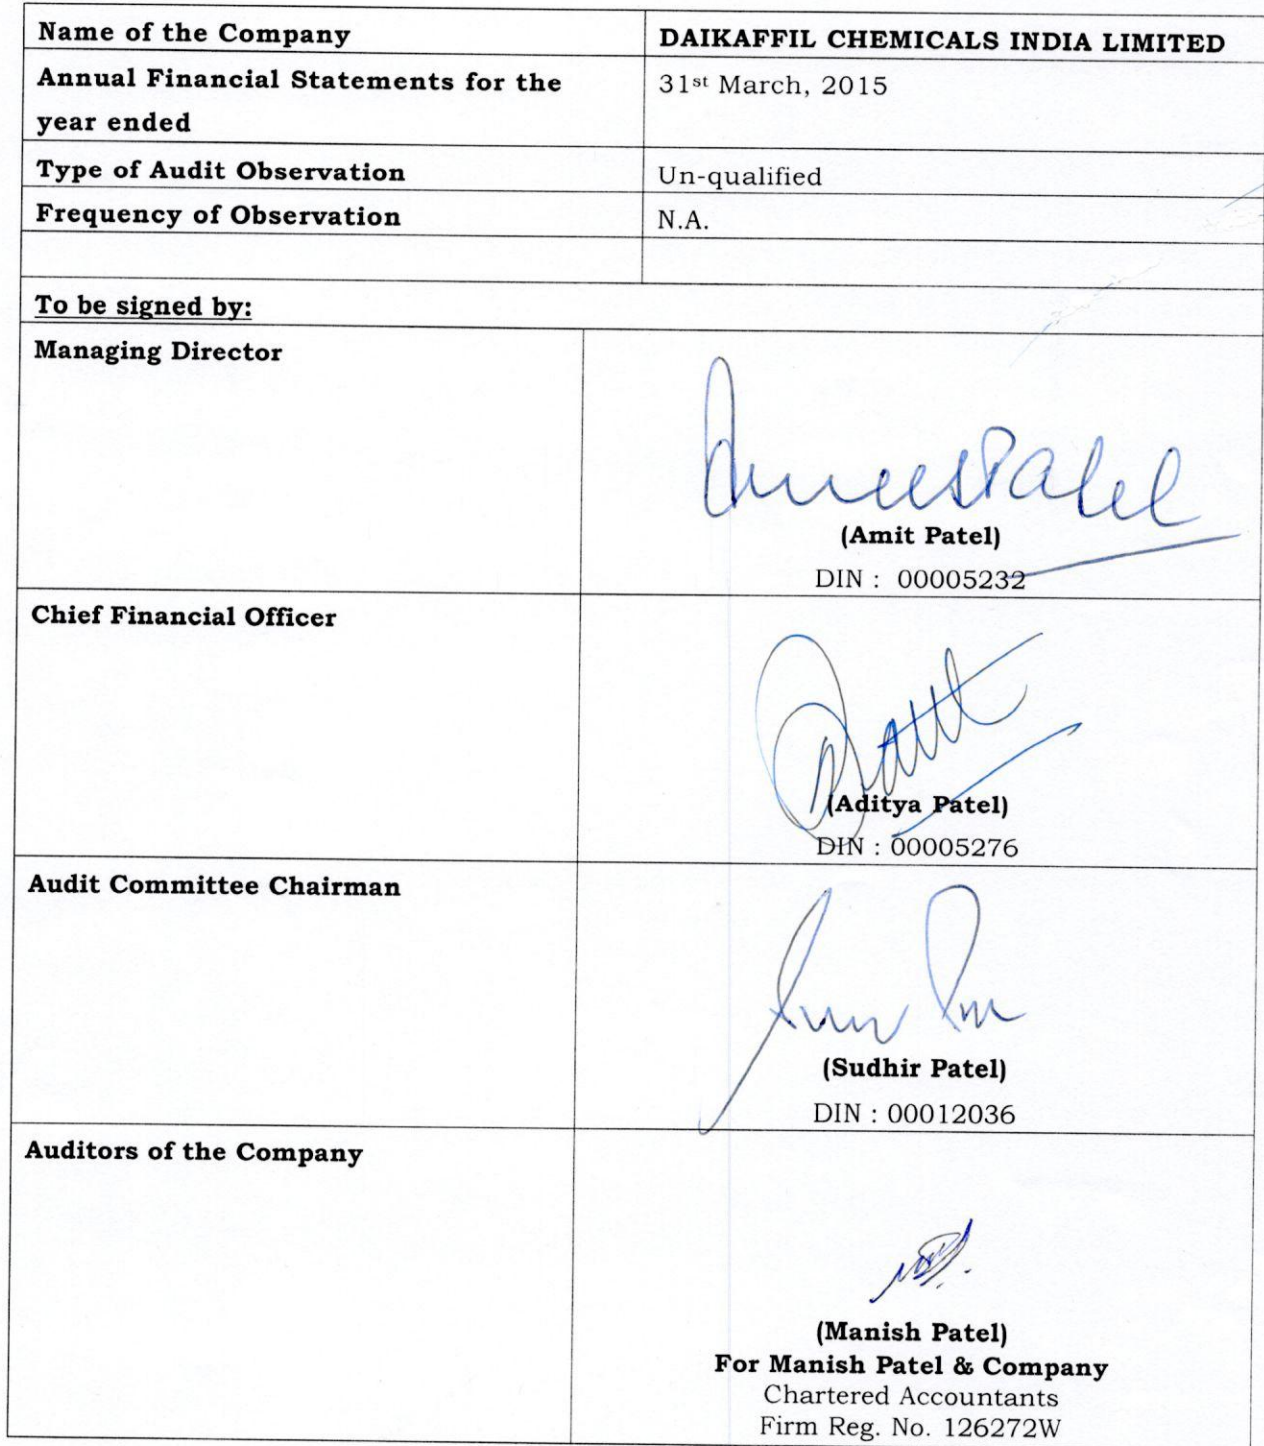 Name of the Company DAIKAFFIL CHEMICALS INDIA LIMITED
Annual Financial Statements for the 31st March, 2015
year ended
Type of Audit Observation Un-qualified
Frequency of Observation N.A.
To be signed by:
Managing Director
(Amit Patel)
DIN : 00005232
Chief Financial Officer
(Aditya Patel)
DIN : 00005276
Audit Committee Chairman
(Sudhir Patel)
DIN : 00012036
Auditors of the Company
(Manish Patel)
For Manish Patel & Company
Chartered Accountants
Firm Reg. No. 126272W